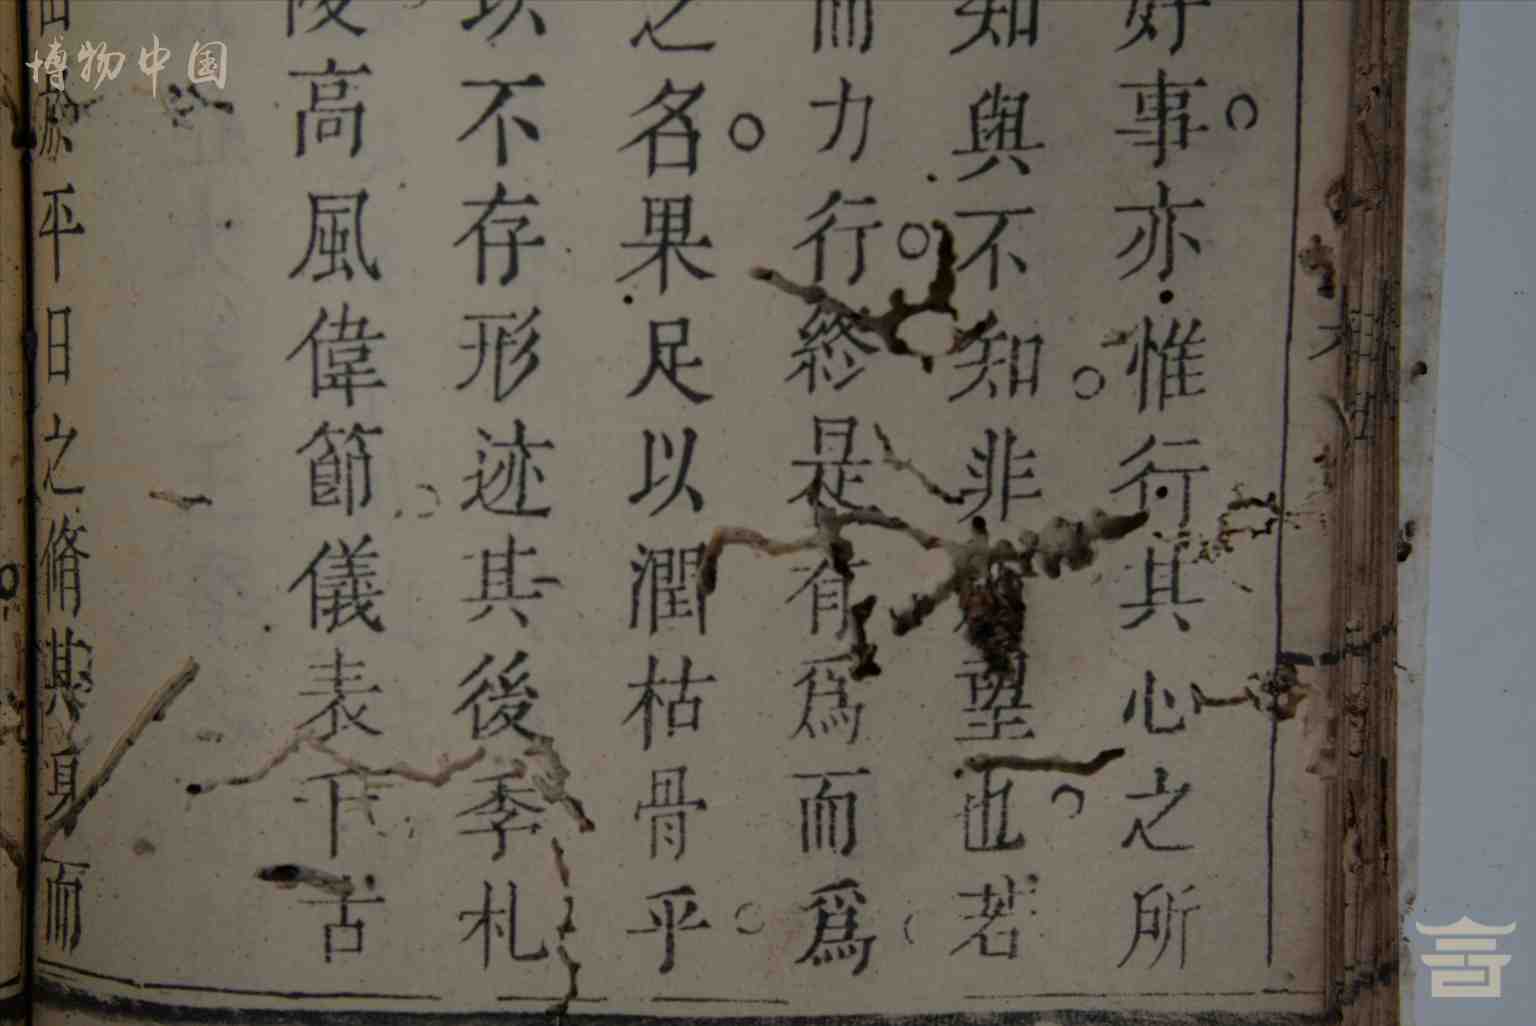 好事亦惟行其心之所
知與不知非望也若
而力行終是有爲而爲
之名果足以潤枯骨乎
以不存形迹其後季札
陵高風偉節儀表千古
於平日之脩其身而
博物中国